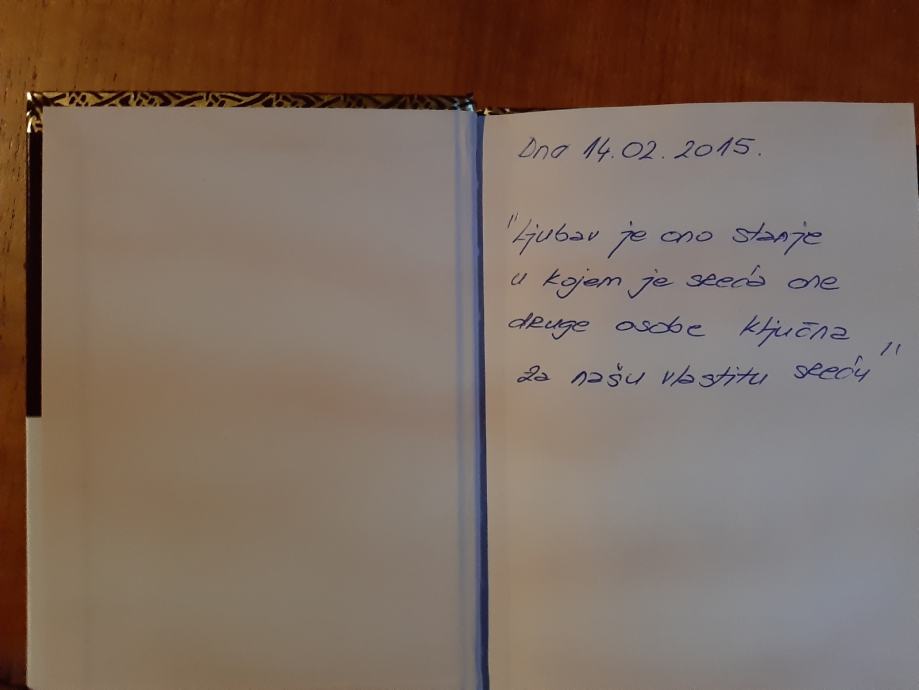 Dna 14.02.2015.
"Ljubav je ono stanje
u kojem je sreća one
druge osobe ključna
za našu vlastitu sreću"